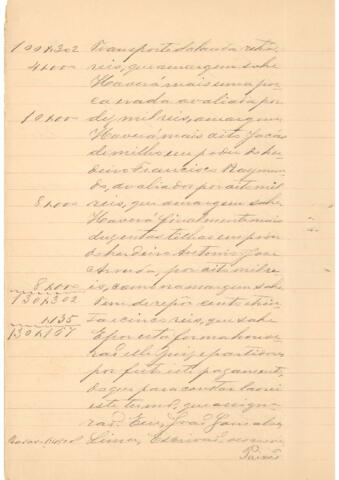 100$302 Transporte
4$000 reis, que a margem sahe
Haverá mais uma por
ca avaliada por
10$000 dez mil reis, a margem
Haverá, mais oito
de milho em poder do her
deiro Francisco Raymun
do, avaliados por oito mil
8$000 reis, que a margem sahe
Haverá finalmente mais
duzentas telhas em poder
do herdeiro Antonio José
por oito mil re
8$000 is, como a margem sahe
130$302 Tem de repôr cento e trin
$135 ta e cinco reis, que sahe
130$167 E por esta forma houve
rão elle juiz e partidores
por feito este pagamento,
do que para constar lavrei
este termo, que assigna
rão. Eu, João Gonçalves
Lima, Escrivão, escrevi